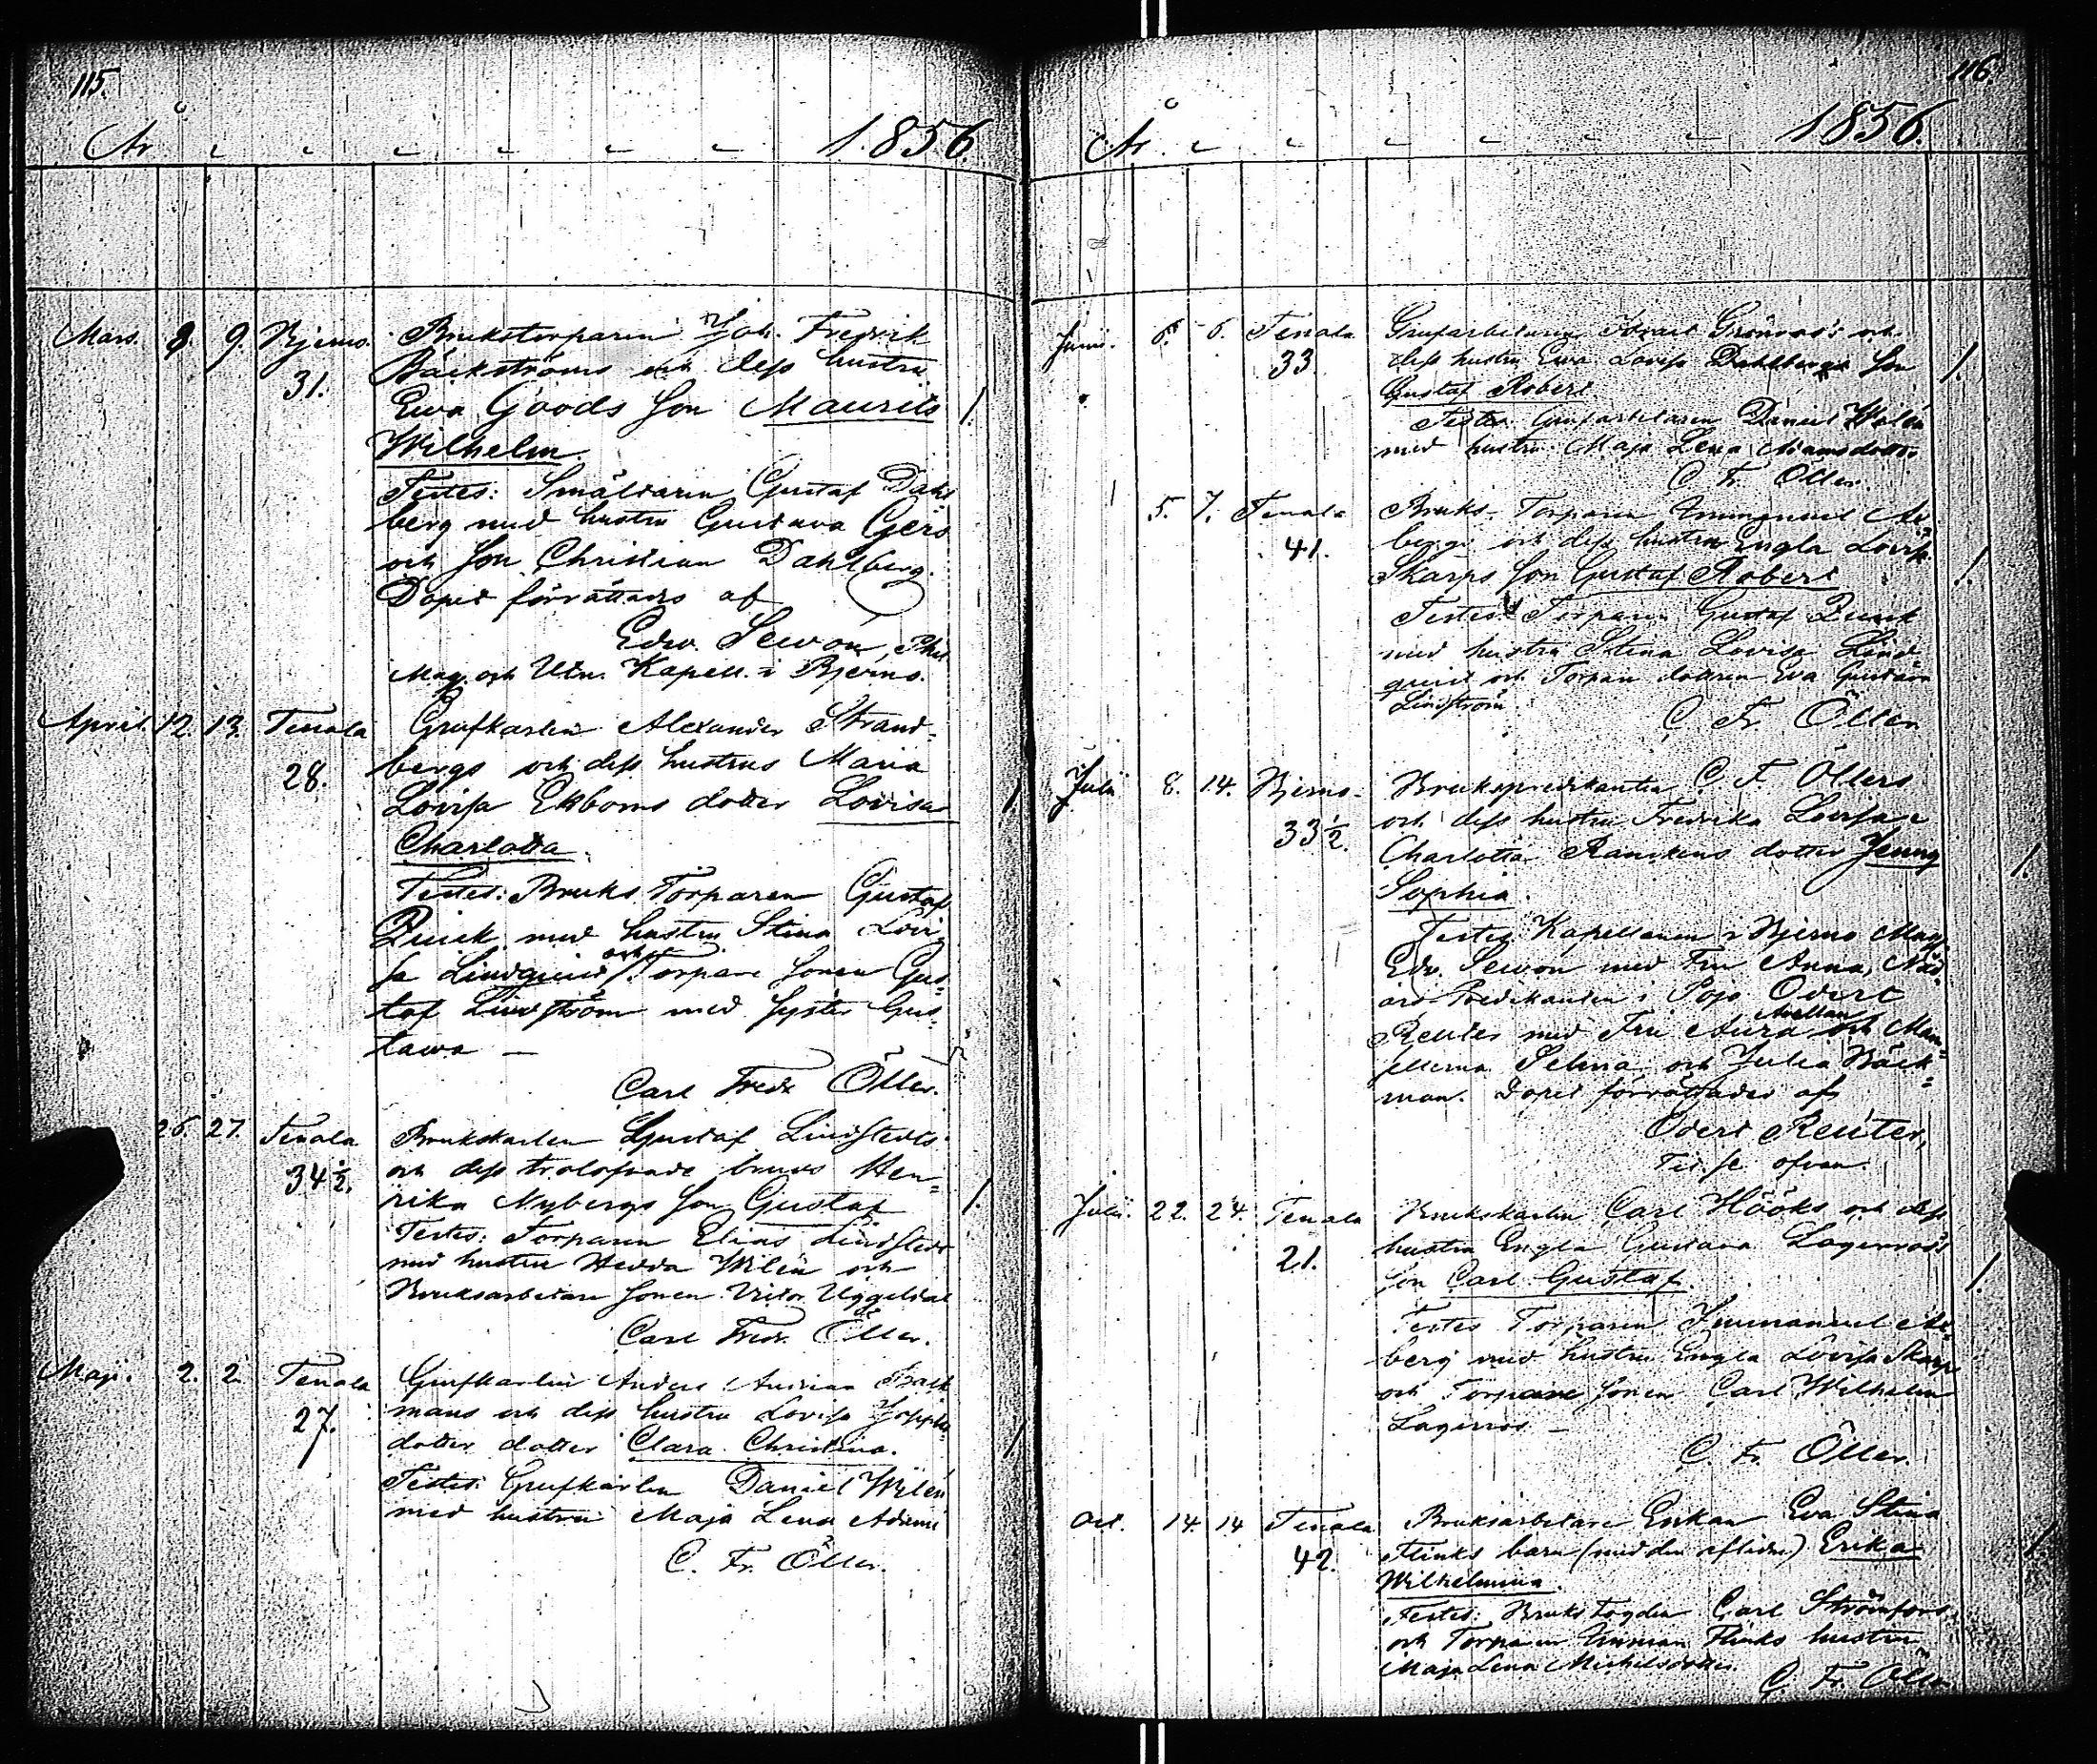 115.
År 1856.
Mars. 8. 9. Bjerno. Brukstorparen Joh. Fredrik
31. Bäckströms och dess hustru
Ewa Goods son Maurits 1.
Wilhelm.
Testes: Smältaren Gustaf Dahl
berg med hustru Gustava Gers
och son Christian Dahlberg.
Dopet förrättades af
Edw. Sewon, Phil
Mag. och Utn. Kapell. i Bjerno.
April. 12. 13. Tenala Grufkarlen Alexander Strand-
28. bergs och dess hustrus Maria
Lovisa Ekboms dotter Lovisa 1
Charlotta.
Testes: Bruks Torparen Gustaf
Quick med hustru Stina Lovi
sa Lindqvist och Torpare sonen Gus-
taf Lindström med syster Gus-
tawa —
Carl Fredr Öller.
26. 27. Tenala Brukskarlen Gustaf Lindstedts
34 1/2. och dess trolofvade bruds Hen-
rika Nybergs son Gustaf 1.
Testes: Torparen Elias Lindstedt
med hustru Hedda Wilén och
Bruksarbetare sonen Victor Uggeldal
Carl Fredr. Öller.
Maji. 2. 2. Tenala Grufkarlen Anders Adrian Back
27. mans och dess hustru Lovisa Josephs-
dotter dotter Clara Christina. 1
Testes: Grufkarlen Daniel Wilén
med hustru Maja Lena Adams
C. Fr. Öller.
116.
År 1856.
Junii. 6. 6. Tenala Grufarbetaren Israel Grönroos's och
33 dess hustru Ewa Lovisa Dahlbergs son 1.
Gustaf Robert.
Testes: Grufarbetaren Daniel Wilén
med hustru Maja Lena Adamsdotter
C. Fr. Öller.
5. 7. Tenala Bruks-Torparen Immanuel
41. bergs och dess hustru Engla Lovisa
Skarps son Gustaf Robert 1.
Testes: Torparen Gustaf Quick
med hustru Stina Lovisa Lind
qvist och Torpare dottren Eva Gustava
Lindström.
C. Fr. Öller.
Julii 8. 14. Bjerno. Brukspredikanten C. F. Öllers
33 1/2. och dess hustru Fredrika Lovisa
Charlotta Ranckens dotter Jenny 1.
Sophia.
Testes: Kapellanen i Bjerno Mag.
Edv. Sewon med Fru Anna, Nåd
års Predikanten i Pojo Odert
Reuter med Fru Aura Avellan och Mam-
sellerna Selma och Julia Bäck-
man. Dopet förrättades af
Odert Reuter,
Tit. se ofvan.
Julii. 22. 24. Tenala Brukskarlen Carl Hööks och dess
21. hustru Engla Gustava Lagerroos's
son Carl Gustaf. 1.
Testes Torparen Immanuel
berg med hustru Engla Lovisa Skarps
och Torpare sonen Carl Wilhelm
Lagerros —
C. Fr. Öller.
Oct. 14. 14 Tenala Bruksarbetare Enkan Eva Stina
42. Flinks barn (med den aflidne) Erika 1
Wilhelmina.
Testes: Bruksfogden Carl Strömfors
och Torparen Flinks hustru
Maja Lena Michelsdotter.
C. Fr. Öller